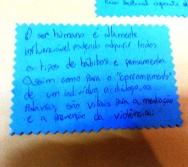 O ser humano é altamente
influenciável podendo adquirir todos
os tipos de hábitos e pensamentos
Assim como para o "aprisionamento"
de um indivíduo, o diálogo, as
palavras, são vitais para a mediação
e a prevenção da violência.